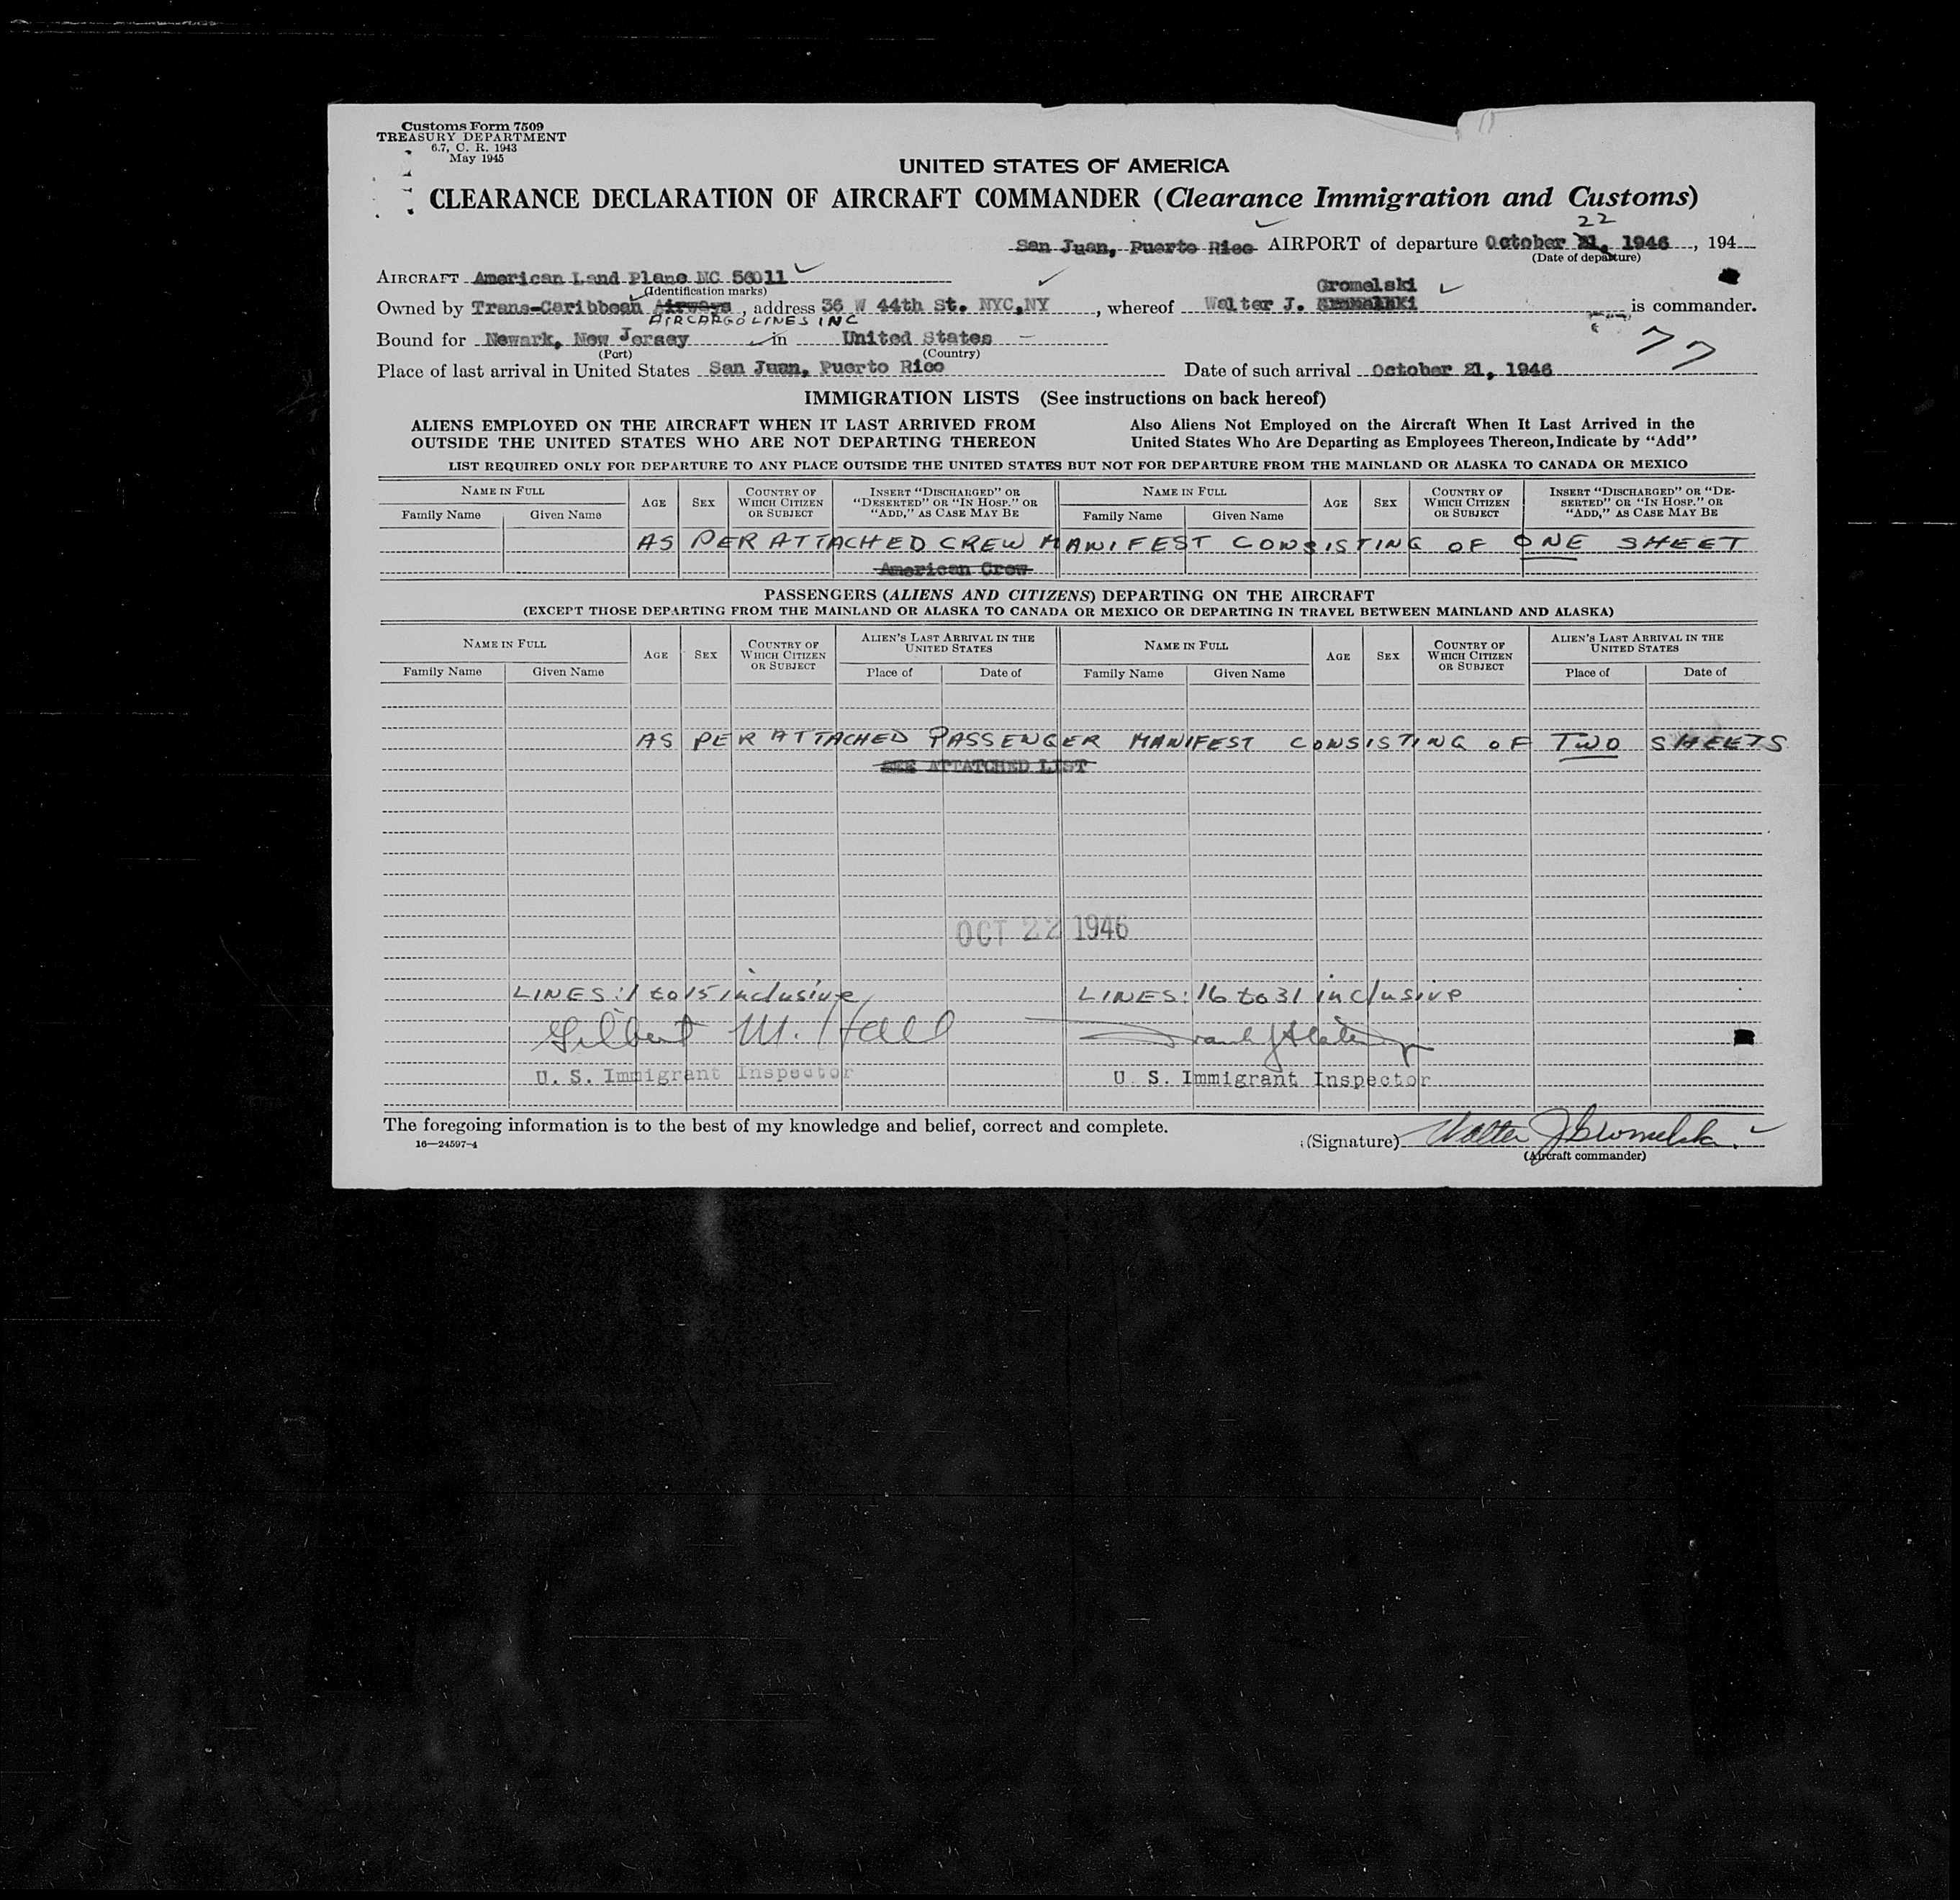 Customs Form 7509
TREASURY DEPARTMENT
6.7, C. R. 1943
May 1945
UNITED STATES OF AMERICA
CLEARANCE DECLARATION OF AIRCRAFT COMMANDER (Clearance Immigration and Customs)
22
San Juan, Puerto Rico AIRPORT of departure October 21, 1946, 194
(Date of departure)
AIRCRAFT American Land Plane NC 56011
(Identification marks)
Gromelski
Owned by Trans-Caribbean Airways, address 36 W 44th St. NYC,NY, whereof Walter J. is commander.
AIRCARGO LINES INC
77
Bound for Newark, New Jersey in United States
(Port) (Country)
Place of last arrival in United States San Juan, Puerto Rico Date of such arrival October 21, 1946
IMMIGRATION LISTS (See instructions on back hereof)
ALIENS EMPLOYED ON THE AIRCRAFT WHEN IT LAST ARRIVED FROM Also Aliens Not Employed on the Aircraft When It Last Arrived in the
OUTSIDE THE UNITED STATES WHO ARE NOT DEPARTING THEREON United States Who Are Departing as Employees Thereon, Indicate by "Add"
LIST REQUIRED ONLY FOR DEPARTURE TO ANY PLACE OUTSIDE THE UNITED STATES BUT NOT FOR DEPARTURE FROM THE MAINLAND OR ALASKA TO CANADA OR MEXICO
NAME IN FULL AGE SEX COUNTRY OF WHICH CITIZEN OR SUBJECT INSERT "DISCHARGED" OR "DESERTED" OR "IN HOSP." OR "ADD," AS CASE MAY BE NAME IN FULL AGE SEX COUNTRY OF WHICH CITIZEN OR SUBJECT INSERT "DISCHARGED" OR "DE-SERTED" OR "IN HOSP." OR "ADD," AS CASE MAY BE
Family Name Given Name Family Name Given Name
AS PER ATTACHED CREW MANIFEST CONSISTING OF ONE SHEET
American Crew
PASSENGERS (ALIENS AND CITIZENS) DEPARTING ON THE AIRCRAFT
(EXCEPT THOSE DEPARTING FROM THE MAINLAND OR ALASKA TO CANADA OR MEXICO OR DEPARTING IN TRAVEL BETWEEN MAINLAND AND ALASKA)
NAME IN FULL AGE SEX COUNTRY OF WHICH CITIZEN OR SUBJECT ALIEN'S LAST ARRIVAL IN THE UNITED STATES NAME IN FULL AGE SEX COUNTRY OF WHICH CITIZEN OR SUBJECT ALIEN'S LAST ARRIVAL IN THE UNITED STATES
Family Name Given Name Place of Date of Family Name Given Name Place of Date of
AS PER ATTACHED PASSENGER MANIFEST CONSISTING OF TWO SHEETS
SEE ATTATCHED LIST
OCT 22 1946
LINES: 1 to 15 inclusive LINES: 16 to 31 inclusive
Gilbert M. Hall Frank J
U. S. Immigrant Inspector U. S. Immigrant Inspector
The foregoing information is to the best of my knowledge and belief, correct and complete.
16—24597-4
(Signature) Walter J Gromelski
(Aircraft commander)